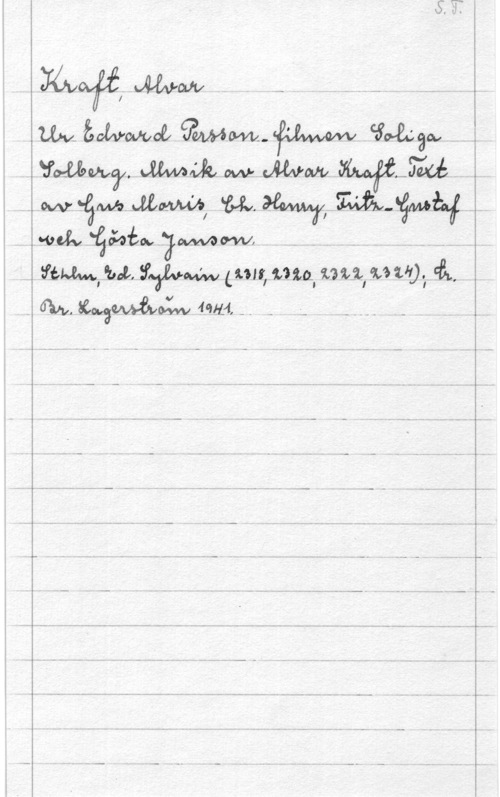 S. T.
Kraft, Alvar
Ur Edvard Persson-filmen Soliga
Solberg. Musik av Alvar Kraft. Text
av Gus Morris, Ch. Henry, Fritz-Gustaf
och Gösta Janson.
Sthlm, Ed. Sylvain (2318, 2320, 2322, 2324); tr.
Br. Lagerström 1941.